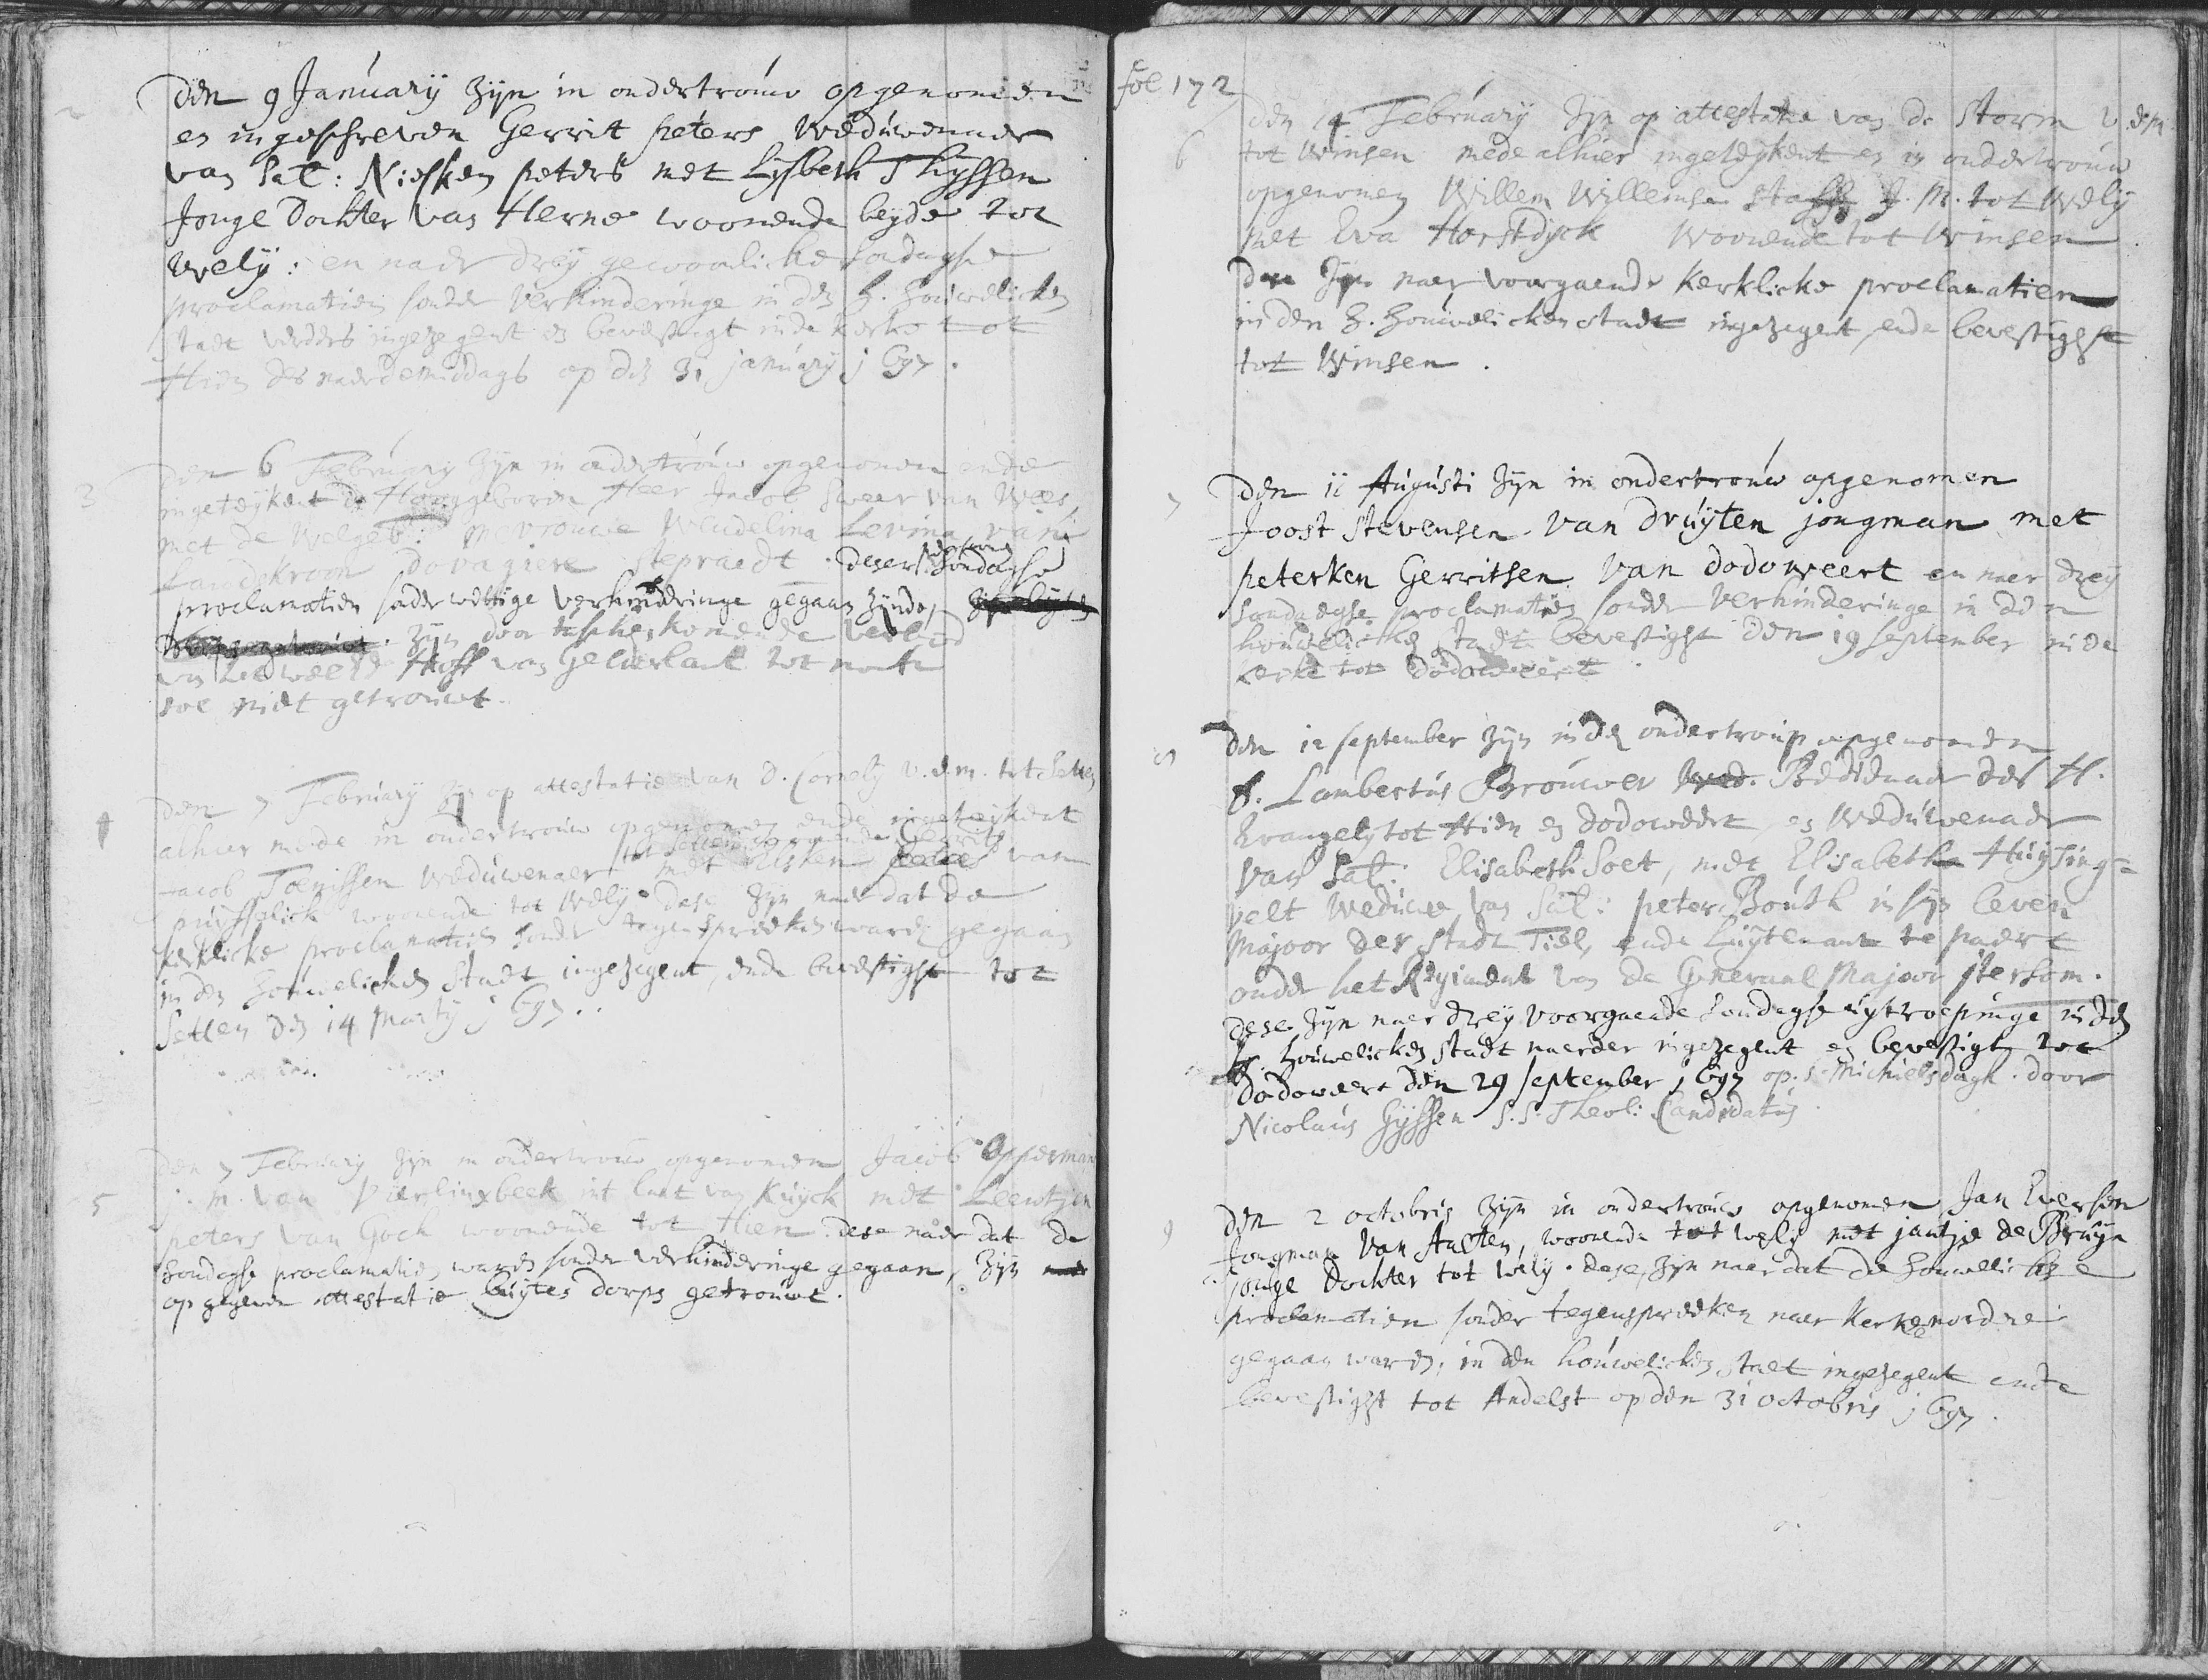 Den 9 Januarij zijn in ondertrouw opgenomen
en ingeschreven Gerrit peters weduwenaer
van Sal: Niesken peters met Lijsbeth Thijssen
Jonge dochter van Herne woonende beyde tot
Welij: en naer drey gewoonlicke sondaghse
proclamatien sonder verhinderinge in den H. houwelicken
stadt verders ingezegent en bevestigt in de kerke tot
Hien des naerdemiddags op den 31 januarij j697.
3
Den 6 Februarij zijn in ondertrouw opgenomen ende
ingeteykent de Hooggeboren Heer Jacob Sweer van Wees
met de Welgeb: Mevrouwe Wendelina Levina van
Landskroon Dovagiere Stepraedt. deser sondaghse
proclamatien sonder wettige verhinderinge gegaen zijnde,
zijn door tusschenkomende verbod
van het Hoff van Gelderlant tot noch
toe niet getrouwt.
4
Den 7 Februarij zijn op attestatie van D. Cornelij v.d.m. tot Setten
alhier mede in ondertrouw opgenomen ende ingeteykent
tot Setten woonende Gerrits
Jacob Toenissen weduwenaer met Elsken van
puyfflick woonende tot Welij. dese zijn naer dat de
kerklicke proclamatien sonder tegenspreeken waren gegaen
in den houwelicken stadt ingezegent, ende bevestight tot
Setten den 14 Martij j697.
5
Den 7 Februarij zijn in ondertrouw opgenomen Jacob Opperman
j.m. van Vierlinxbeek int lant van Kuyck met Leentjen
peters van Goch woonende tot Hien. dese naer dat de
sondaghse proclamatien waren sonder verhinderinge gegaen, zijn
op gegeven attestatie buyten dorps getrouwt.
fol 172
6
Den 14 Februarij zijn op attestatie van Ds Storm v.d.m.
tot Winsen mede alhier ingeteykent en in ondertrouw
opgenomen Willem Willemsen J.M. tot Welij
met Eva Horstdyck woonende tot Winsen.
Dese zijn naer voorgaende kerklicke proclamatien
in den H. houwelicken stadt ingezegent, ende bevestighst
tot Winsen.
7
Den 11 Augusti zijn in ondertrouw opgenomen
Joost Stevensen van Druyten jongman met
peterken Gerritsen van Dodoweert en naer drey
sondaeghse proclamatien sonder verhinderinge in den
houwelicken stadt bevestight den 19 september in de
kerke tot Dodoweert.
8
Den 12 september zijn in de ondertrouw opgenomen
D. Lambertus Brouwer Wed. Bedienaer des H.
Evangely tot Hien en Dodoweert, en Weduwenaer
van Sal: Elisabeth Soet, met Elisabeth Huysing=
velt Weduwe van Sal: peter Bouth in sijn leven
Majoor der Stadt Tiel, ende Luytenant te paert
onder het Regiment van de Generael Majoor jtersom.
Dese zijn naer drey voorgaende sondaghse uytroepinge in den
H. houwelicken stadt naerder ingezegent en bevestigt tot
Dodoweert den 29 september j697 op S. Michielsdagh door
Nicolaus Gijssen S.S. Theol: Candidatus.
9
Den 2 octobris zijn in ondertrouw opgenomen Jan Eversen
Jongman van Aalten, woonende tot Welij met jantje de Bruyn
jonge dochter tot Welij. dese zijn naer dat de houwelickse
proclamatien sonder tegenspreeken naer kerkenordre
gegaen waren, in den houwelicken staet ingezegent ende
bevestight tot Andelst op den 31 octobris j697.